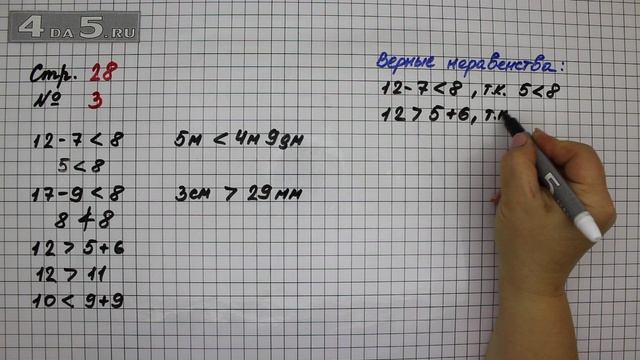 4 DA 5.RU
Стр. 28
№ 3
12-7 < 8
5 < 8
17-9 < 8
8 ≮ 8
12 > 5+6
12 > 11
10 < 9+9
5м < 4м 9дм
3см > 29мм
Верные неравенства:
12-7 < 8, т.к. 5 < 8
12 > 5+6, т.к